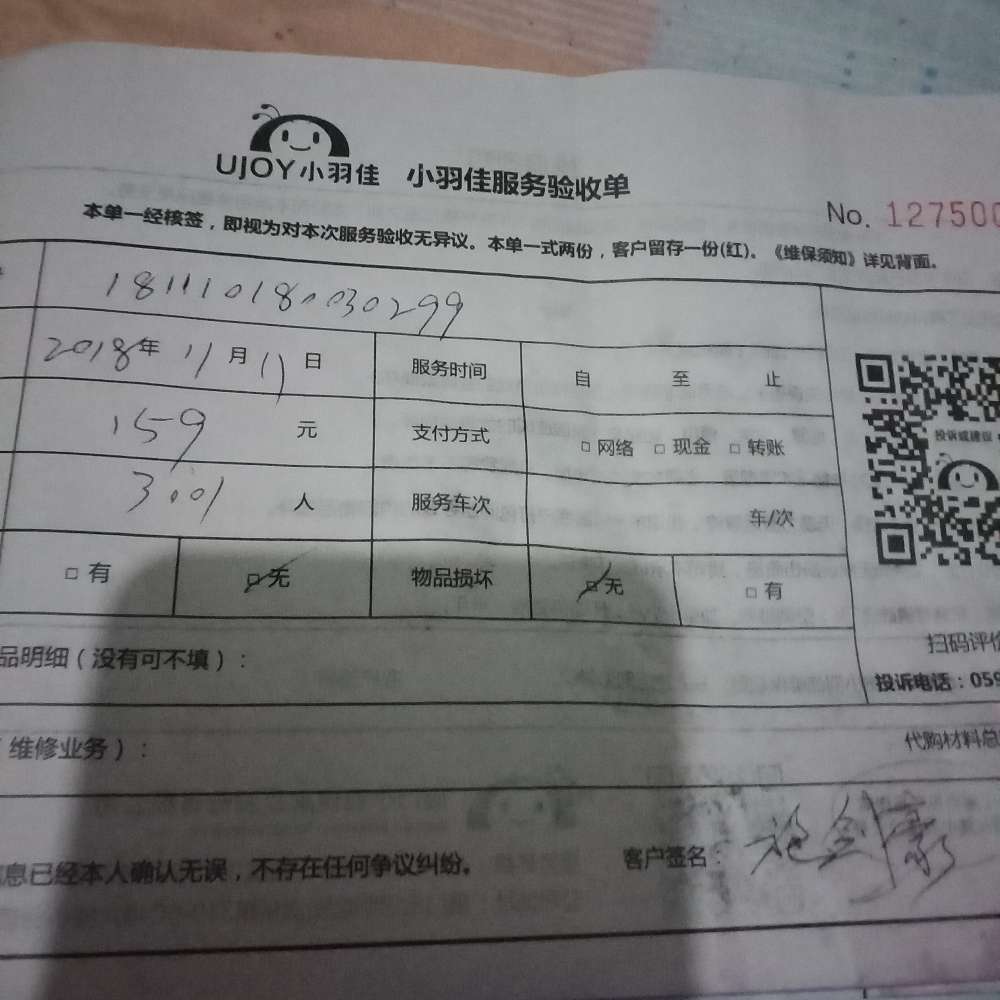 UJOY小羽佳 小羽佳服务验收单
No. 127500
本单一经核签，即视为对本次服务验收无异议。本单一式两份，客户留存一份(红)。《维保须知》详见背面。
18111018030299
2018年 11月 11日 服务时间 自 至 止
159 元 支付方式 □网络 □现金 □转账
人 服务车次 车/次
投诉或建议
□有 □无 物品损坏 □无 □有
扫码评价
品明细（没有可不填）：
投诉电话：059
（维修业务）：
代购材料总
息已经本人确认无误，不存在任何争议纠纷。
客户签名：施剑豪